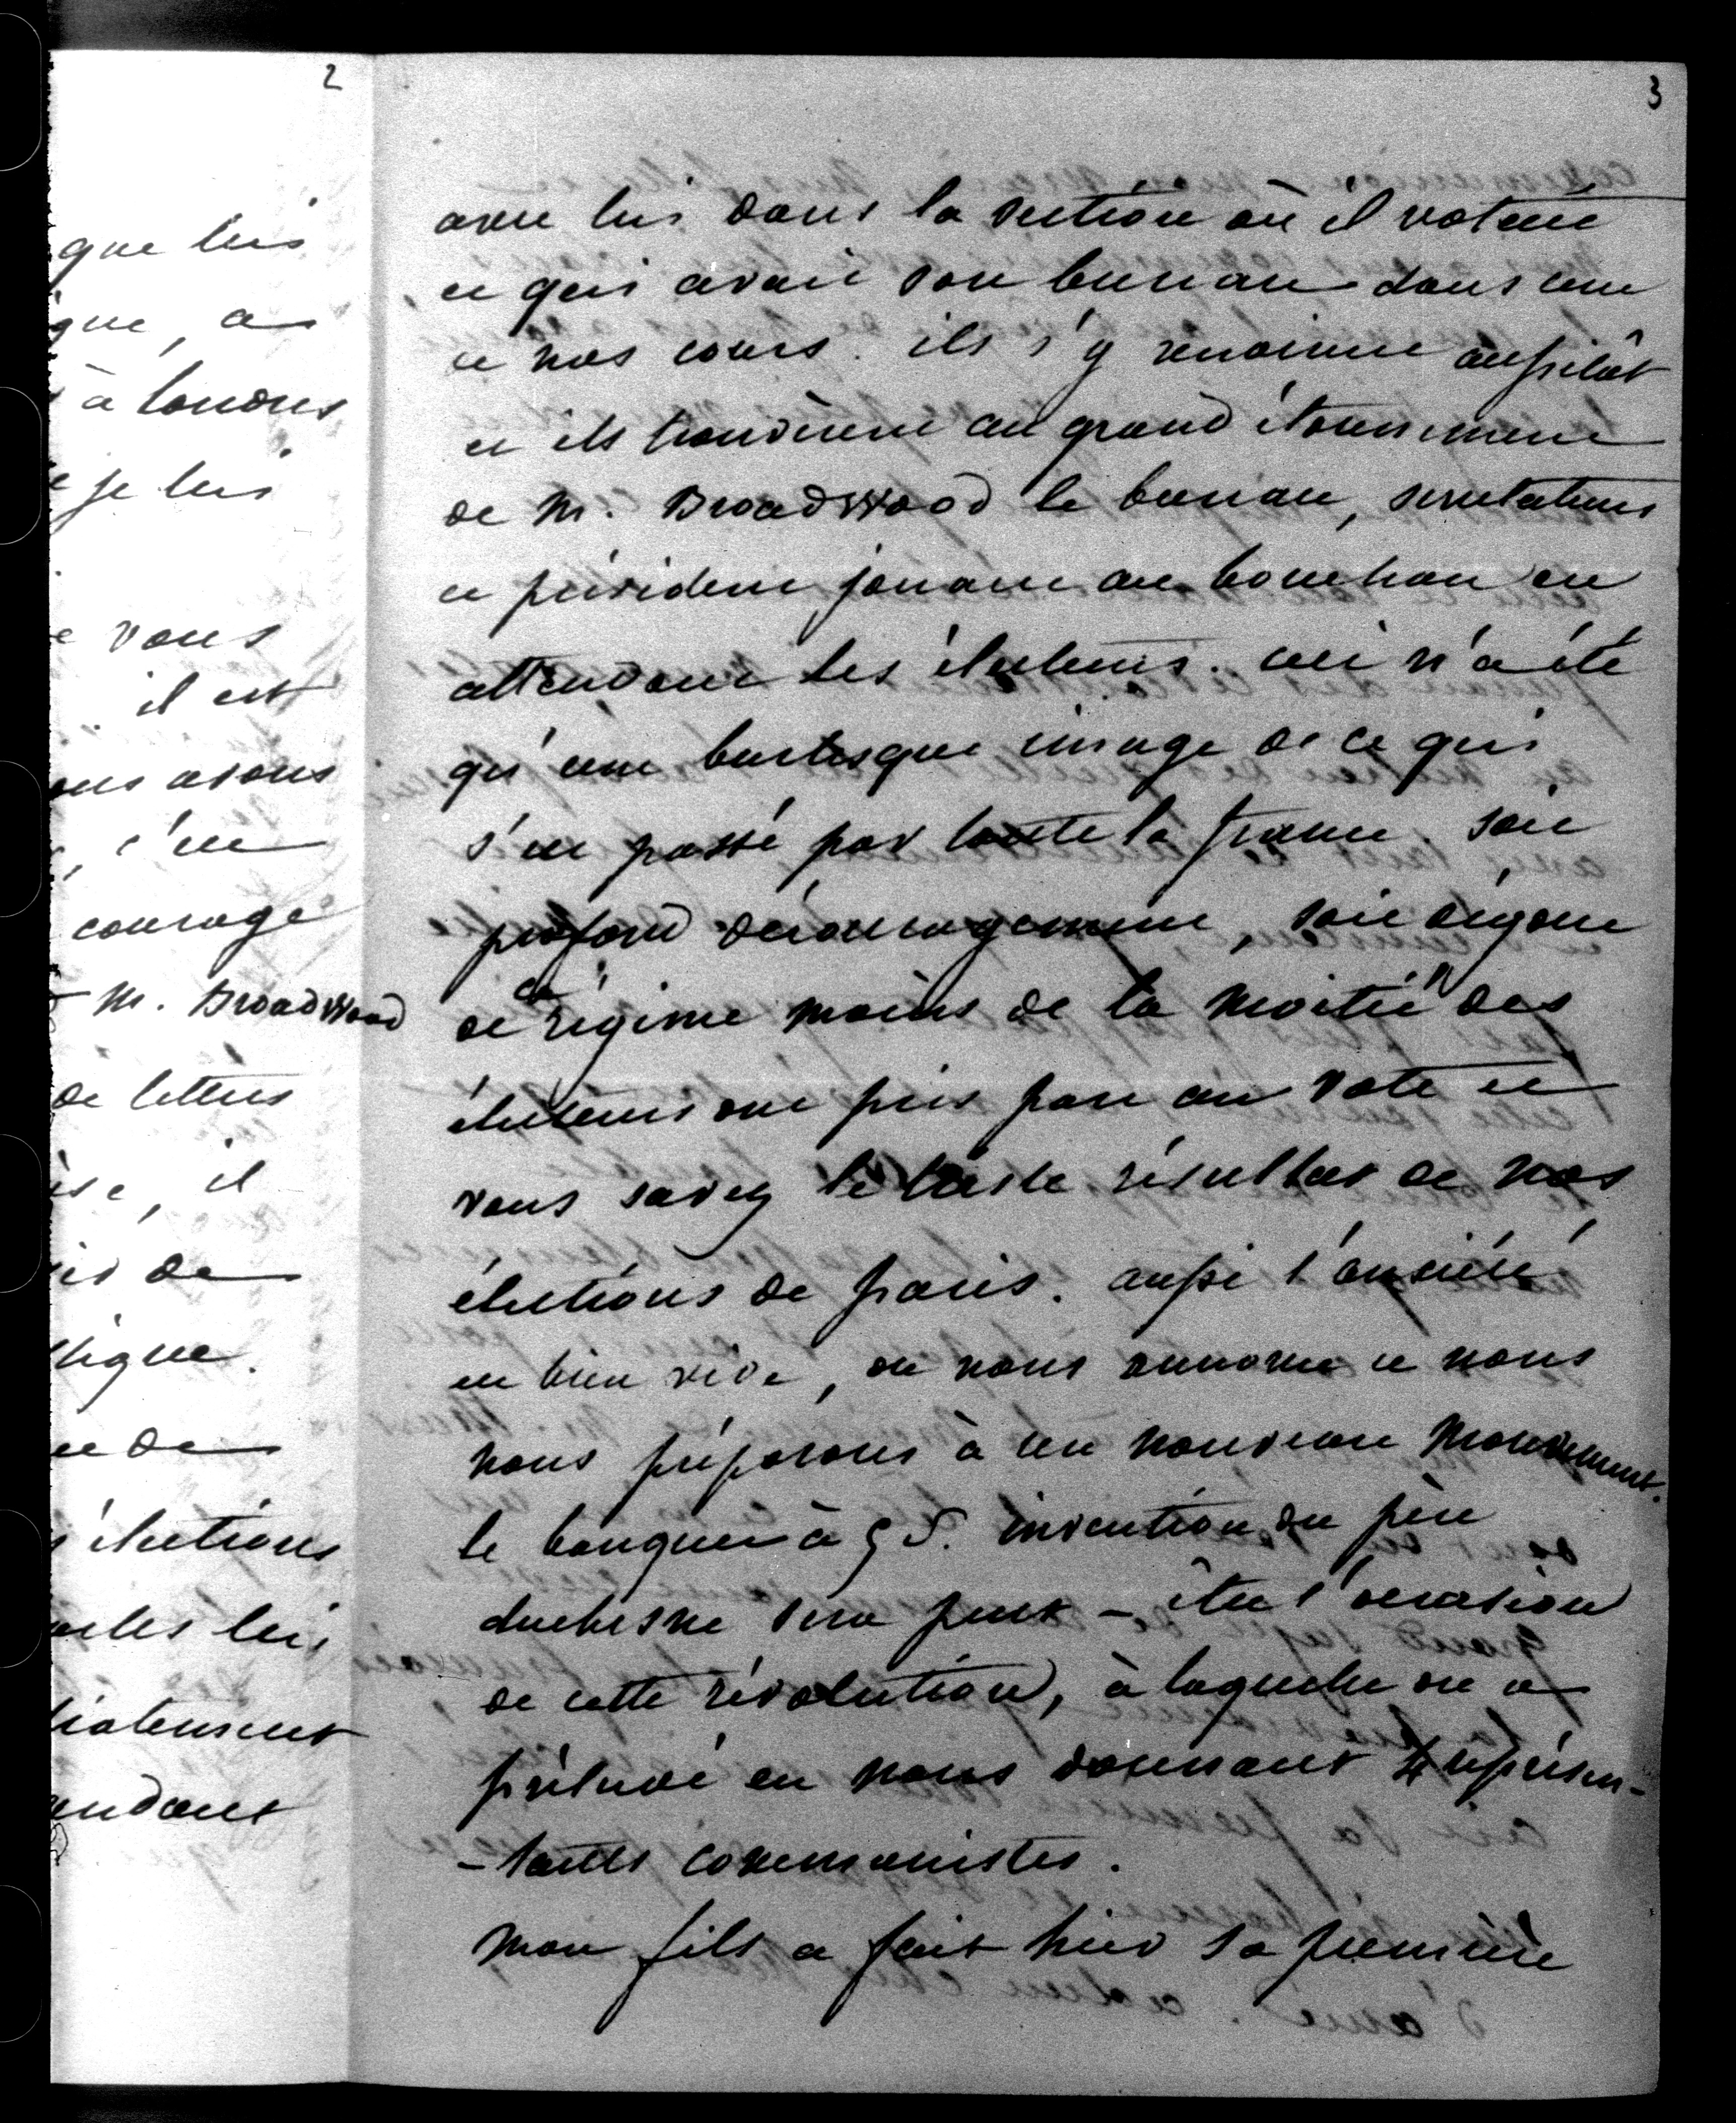 2
que lui
que, a
à londres
je lui
vous
il est
avons
courage
M. Broadwood
de lettres
il
de
élections
lui
3
avec lui dans la section où il votait
et qui avait son bureau dans une
de nos cours. ils s'y rendirent aussitôt
et ils trouvèrent au grand étonnement
de M. Broadwood le bureau, scrutateurs
et président jouant au bouchon en
attendant les électeurs. ceci n'a été
qu'une burlesque image de ce qui
s'est passé par toute la france. soit
profond découragement, soit dégout
de ce régime moins de la moitié des
électeurs ont pris part au vote et
vous savez le triste résultat de nos
élections de paris. aussi l'anxiété
est bien vive, on nous annonce et nous
nous préparons à un nouveau mouvement.
le banquet à 5 S. invention du père
duchesne sera peut-être l'occasion
de cette révolution, à laquelle on a
préludé en nous donnant représen-
-tants communistes.
mon fils a fait hier sa première